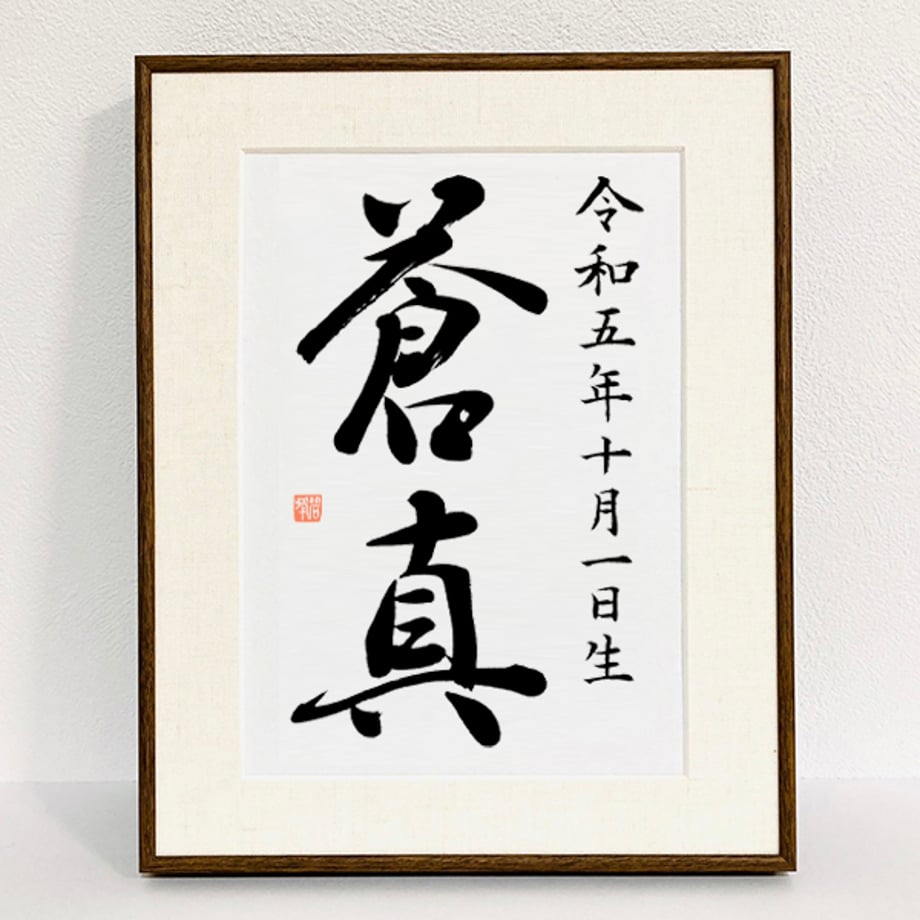 令和五年十月一日生
蒼真